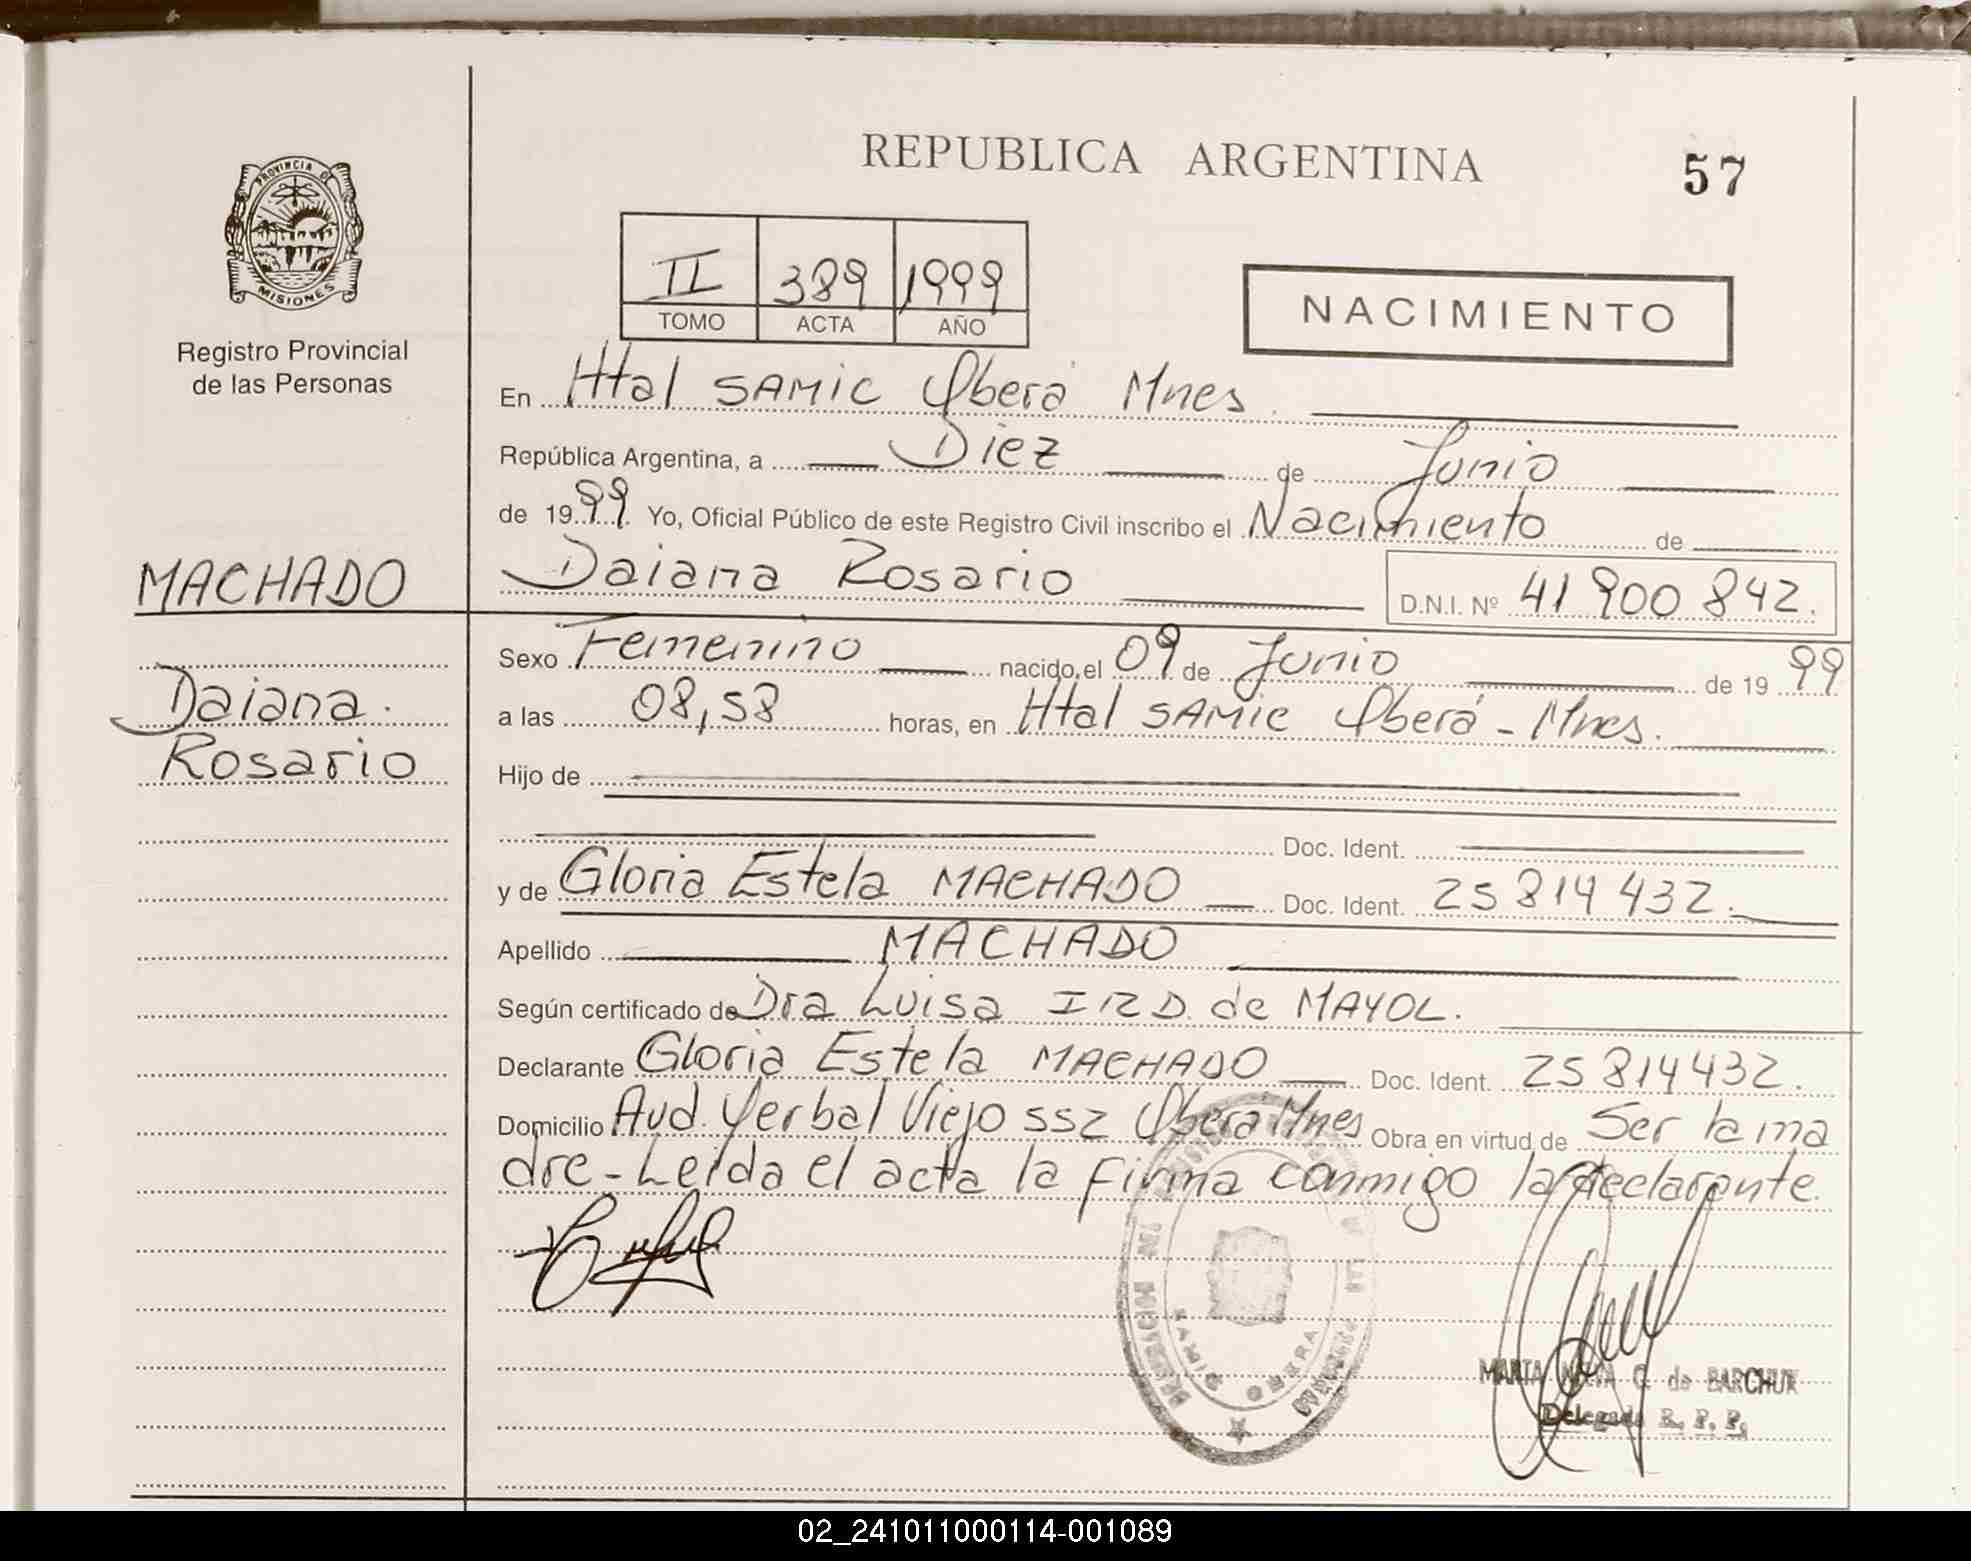 REPUBLICA ARGENTINA
57
PROVINCIA DE
MISIONES
Registro Provincial
de las Personas
II 389 1999
TOMO ACTA AÑO
NACIMIENTO
En Htal SAMIC Oberá Mnes.
República Argentina, a Diez de Junio
de 1999. Yo, Oficial Público de este Registro Civil inscribo el Nacimiento de
MACHADO
Daiana Rosario D.N.I. Nº 41 900 842.
Sexo Femenino nacido, el 09 de Junio de 1999
Daiana.
a las 08,58 horas, en Htal SAMIC Oberá - Mnes.
Rosario
Hijo de
Doc. Ident.
y de Gloria Estela MACHADO Doc. Ident. 25 814 432.
Apellido MACHADO
Según certificado de Dra Luisa de MAYOL.
Declarante Gloria Estela MACHADO Doc. Ident. 25 814 432.
Domicilio Avd. Yerbal Viejo 552 Oberá Mnes Obra en virtud de Ser la ma
dre - Leída el acta la firma conmigo la declarante.
OBERA
G. de BARCHUK
Delegada R. P. P.
02_241011000114-001089